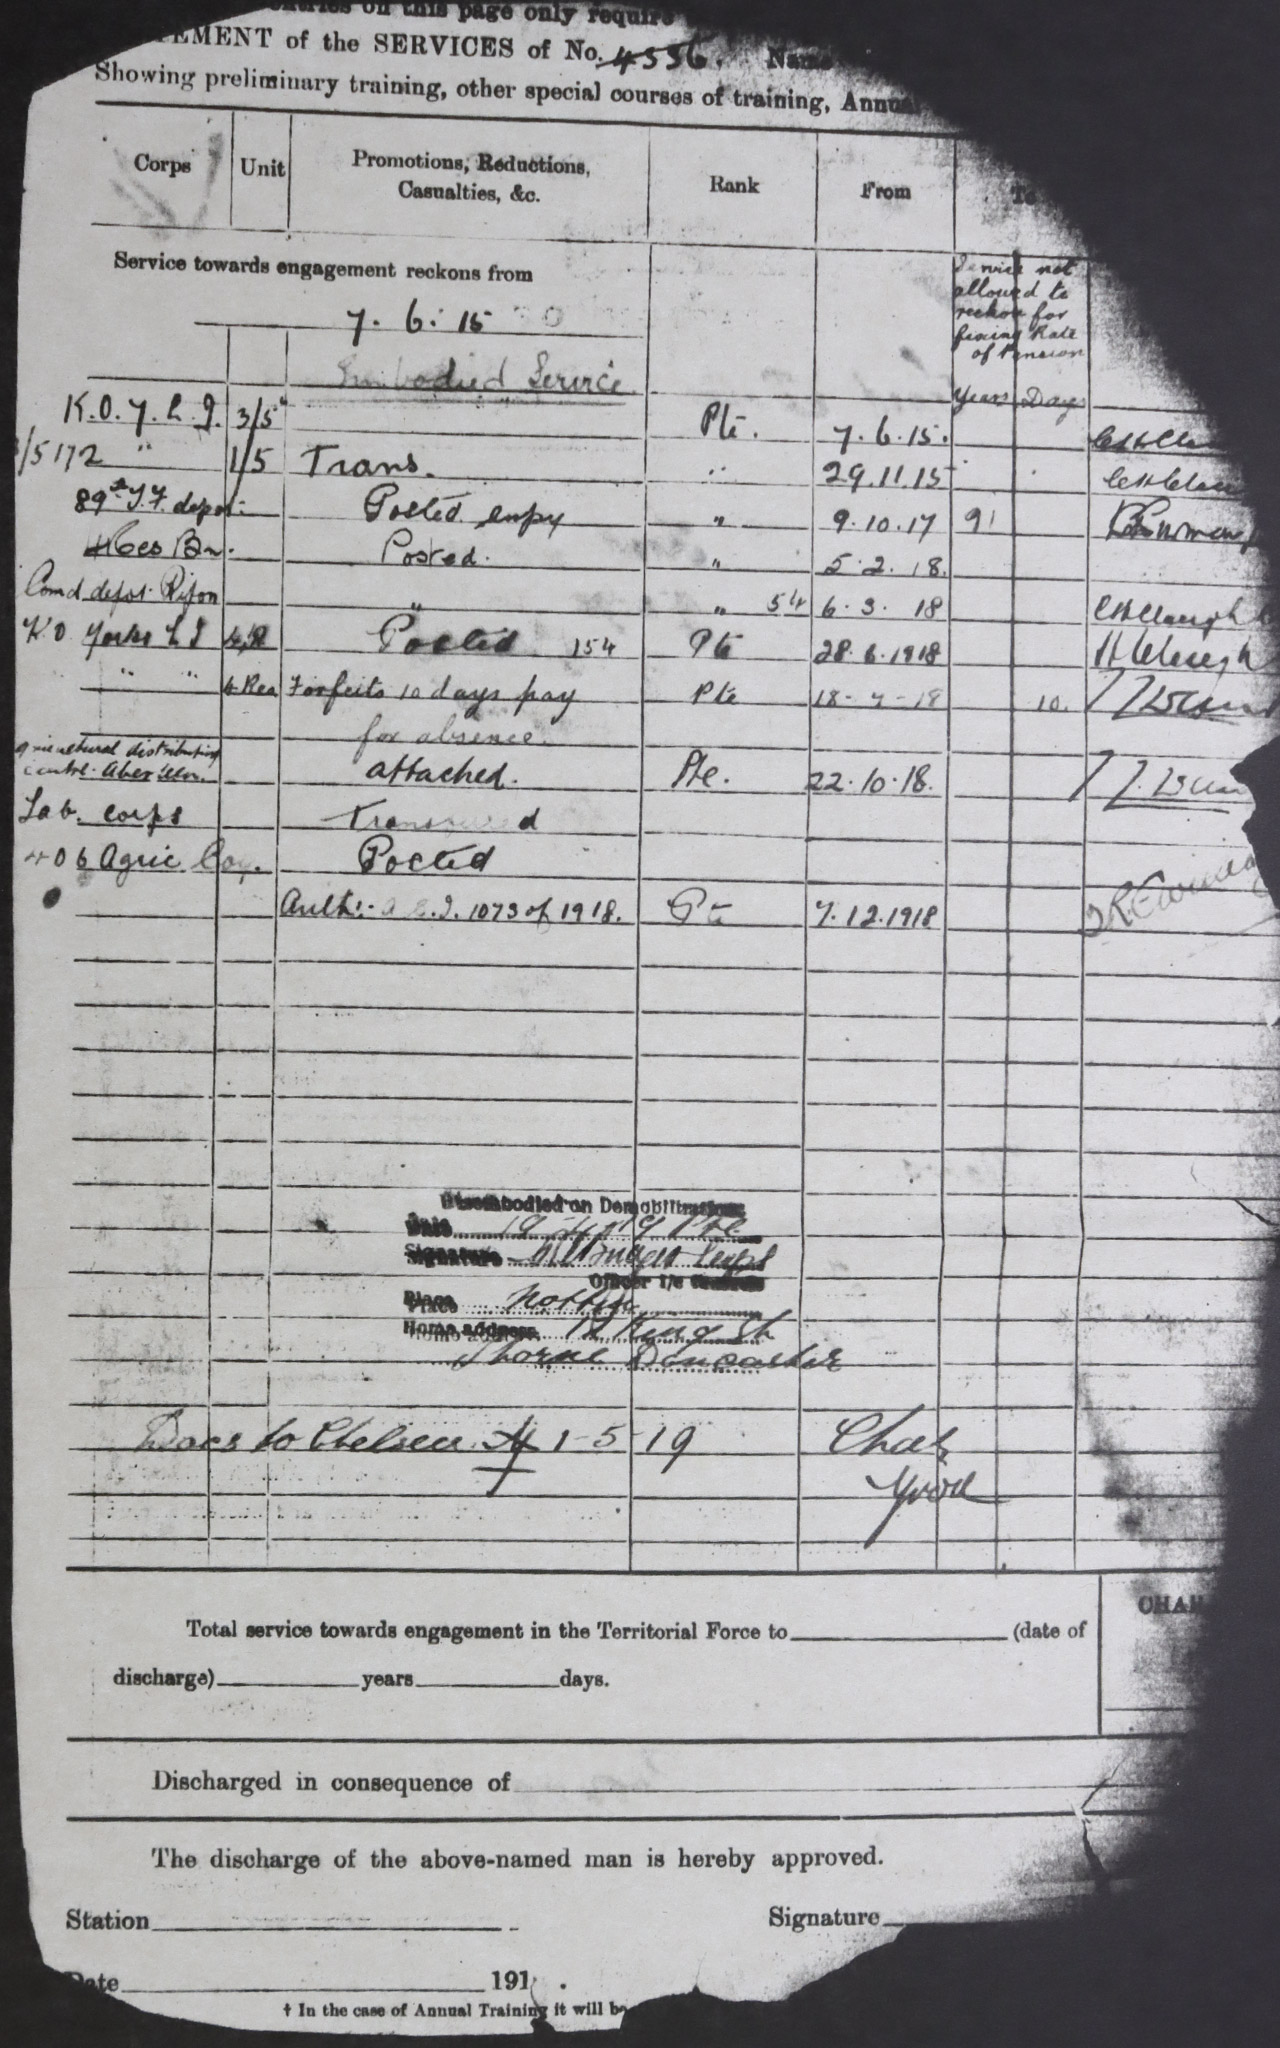 entries on this page only require
TEMENT of the SERVICES of No. 4556. Name
Showing preliminary training, other special courses of training, Annual
Corps Unit Promotions, Reductions, Casualties, &c. Rank From To
Service towards engagement reckons from
7. 6. 15
Service not allowed to reckon for fixing Rate of Pension
Years Days
Embodied Service
K.O.Y.L.I. 3/5 Pte. 7.6.15.
/5172 " 1/5 Trans. " 29.11.15
89th T.F. depot. Posted " 9.10.17 91
4 Res Bn. Posted. " 5.2.18.
Comd depot Ripon " " 54 6.3.18
K.O Yorks L I 4/R Posted 154 Pte 28.6.1918
" " 4 Res Forfeits 10 days pay Pte 18-7-18 10.
for absence.
agricultural distribution
centre. attached. Pte. 22.10.18.
Lab. Corps Transferred
406 Agric Coy. Posted
Auth:- A.C.I. 1073 of 1918. Pte 7.12.1918
Disembodied on Demobilization
Date
Signature
Officer i/c Records
Place
Home address King St
Thorne Doncaster
Docs to Chelsea 1-5-19
Total service towards engagement in the Territorial Force to (date of
discharge) years days.
CHAR
Discharged in consequence of
The discharge of the above-named man is hereby approved.
Station Signature
Date 191 .
† In the case of Annual Training it will be